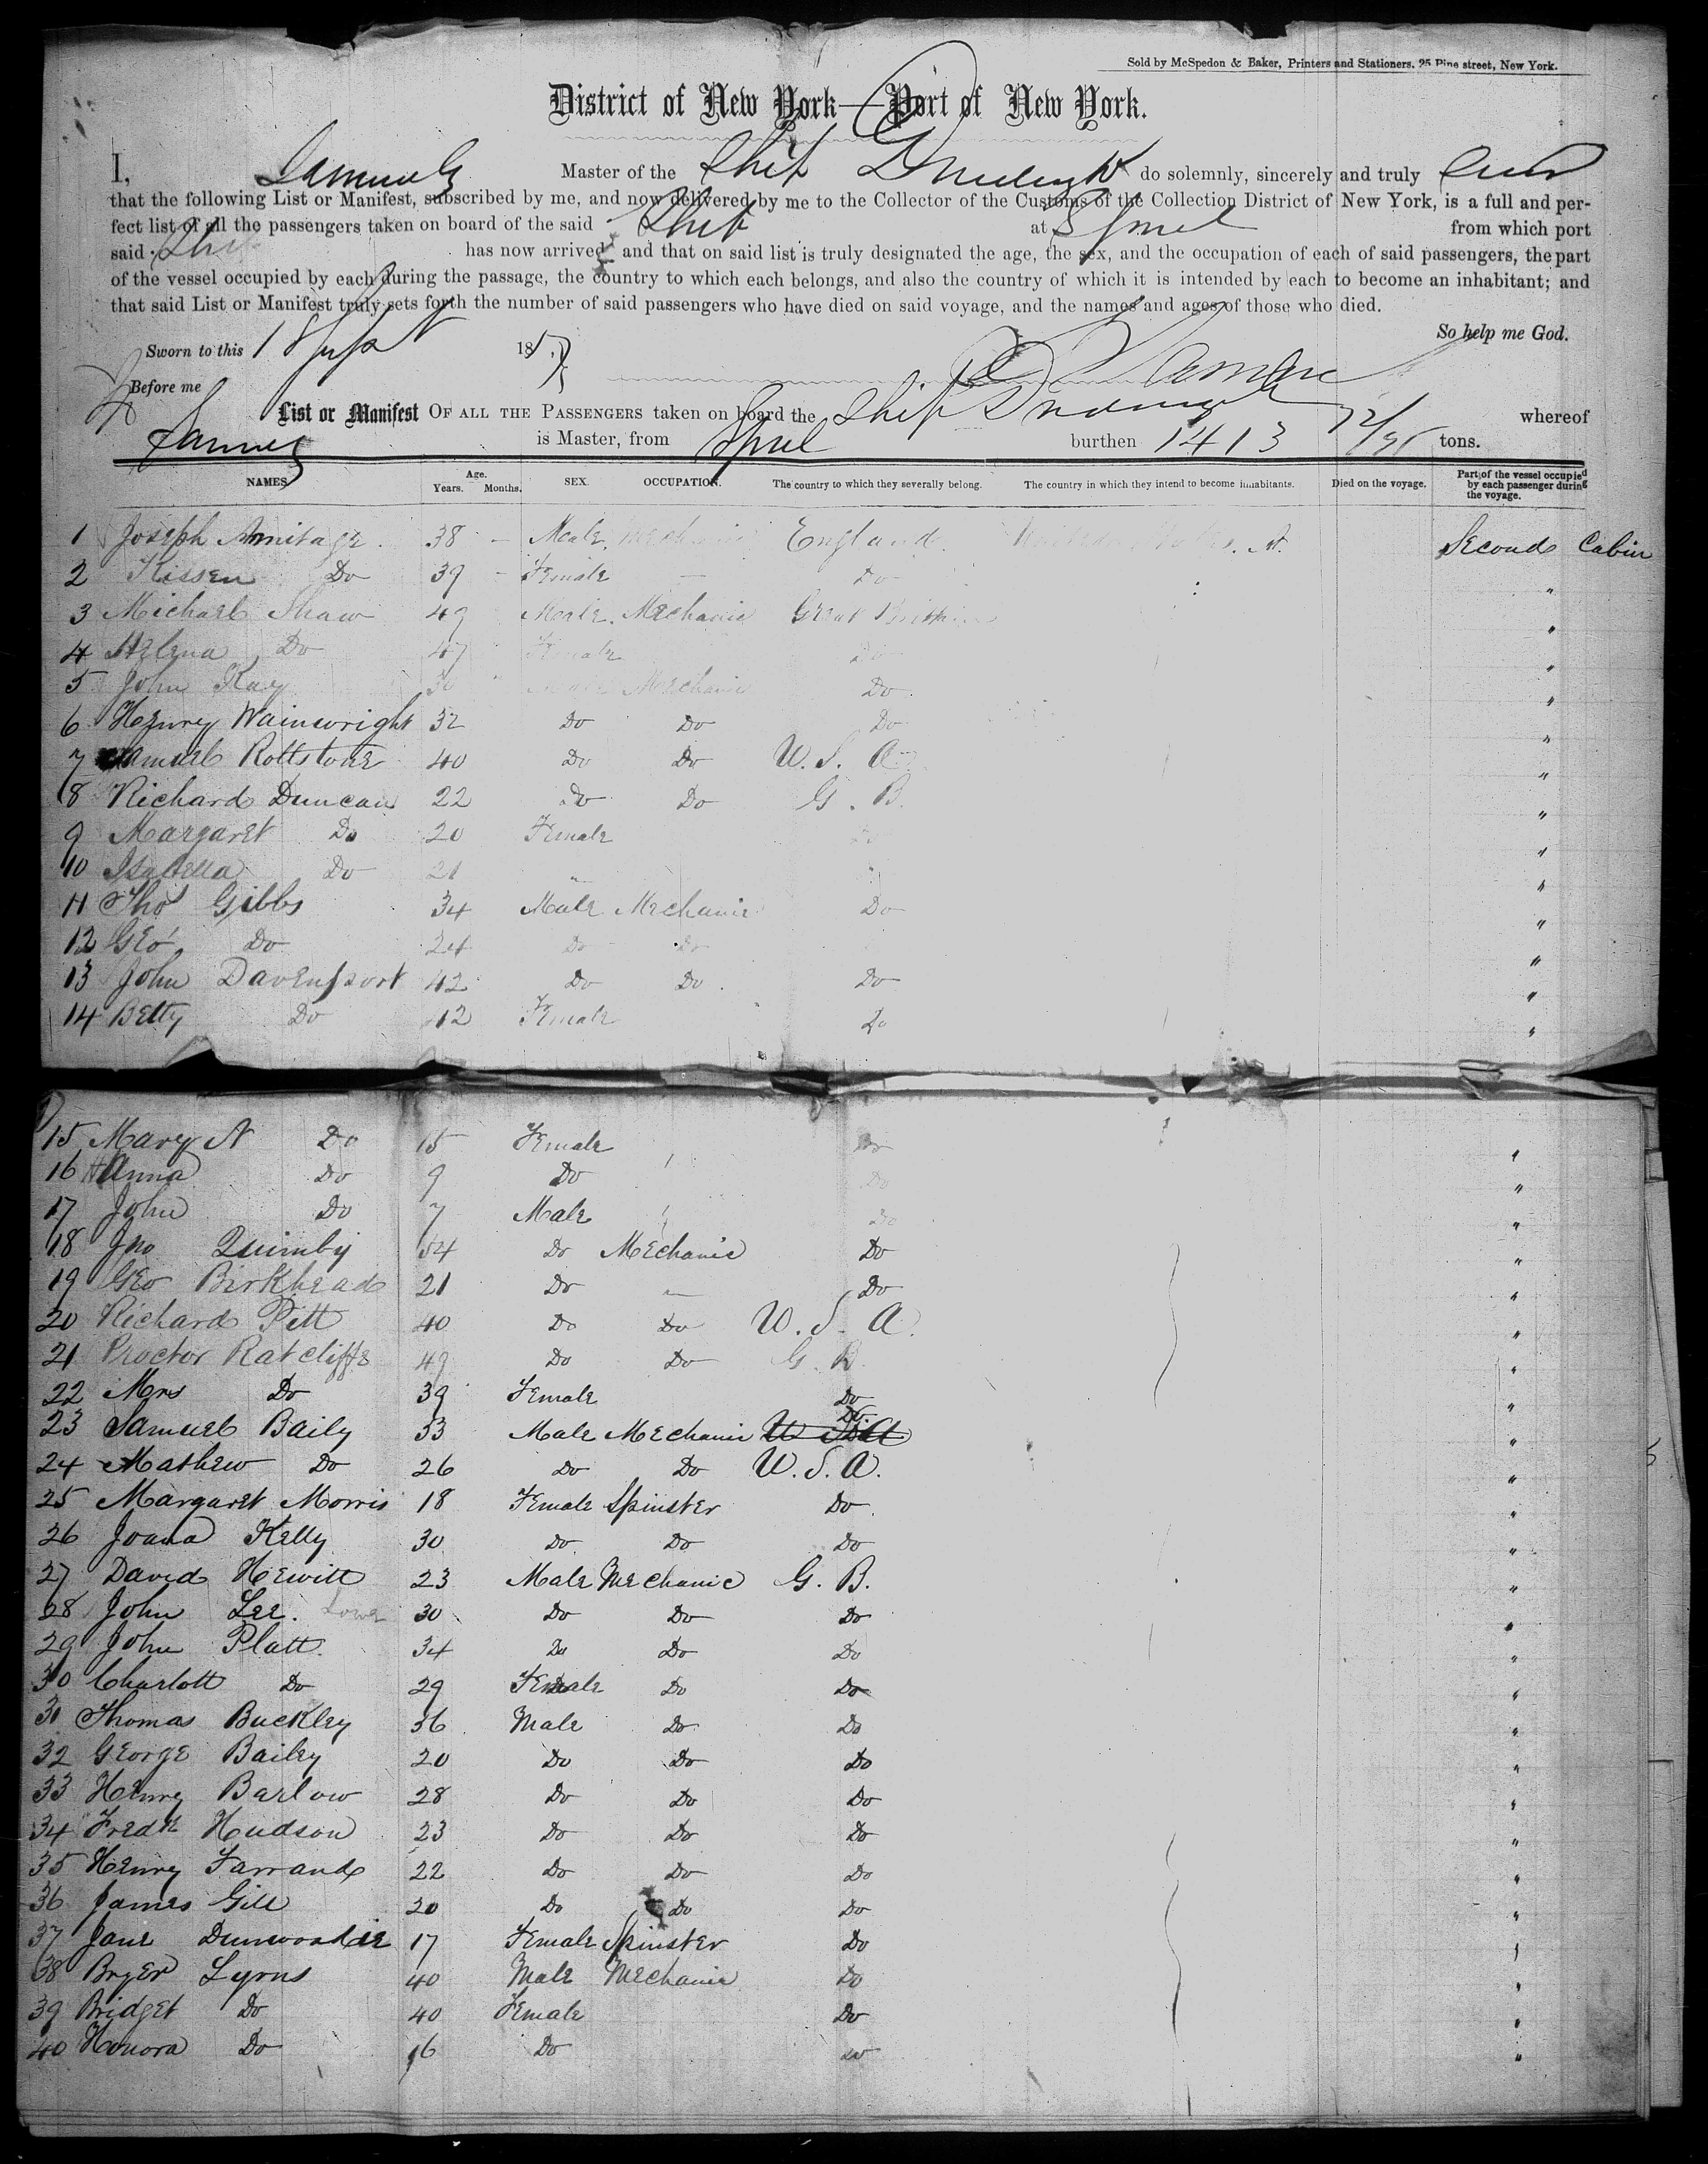 Sold by McSpedon & Baker, Printers and Stationers. 25 Pine street, New York.
District of New York—Port of New York.
I, Samuels Master of the Ship do solemnly, sincerely and truly
that the following List or Manifest, subscribed by me, and now delivered by me to the Collector of the Customs of the Collection District of New York, is a full and per-
fect list of all the passengers taken on board of the said Ship at from which port
said Ship has now arrived and that on said list is truly designated the age, the sex, and the occupation of each of said passengers, the part
of the vessel occupied by each during the passage, the country to which each belongs, and also the country of which it is intended by each to become an inhabitant; and
that said List or Manifest truly sets forth the number of said passengers who have died on said voyage, and the names and ages of those who died.
So help me God.
Sworn to this 18 185
Before me
List or Manifest OF ALL THE PASSENGERS taken on board the Ship whereof
Samuels is Master, from burthen 1413 72/95 tons.
NAMES Age. Years. Months. SEX. OCCUPATION. The country to which they severally belong. The country in which they intend to become inhabitants. Died on the voyage. Part of the vessel occupied by each passenger during the voyage.
1 Joseph Armitage 38 - Male Mechanic England Second Cabin
2 Kissen Do 39 - Female - Do "
3 Michael Shaw 49 Male Mechanic Great Brittain "
4 Helena Do 47 Female Do "
5 John Kay 30 Male Mechanic Do "
6 Henrey Wainwright 32 Do Do Do "
7 Samuel Rottstone 40 Do Do U.S.A "
8 Richard Duncan 22 Do Do G.B. "
9 Margaret Do 20 Female Do "
10 Isabella Do 21 " " "
11 Thos Gibbs 34 Male Mechanic Do "
12 Geo. Do 24 Do Do "
13 John Davenport 42 Do Do Do "
14 Betty Do 42 Female Do "
15 Mary A Do 15 Female Do "
16 Anna Do 9 Do Do "
17 John Do 7 Male Do "
18 Jno Quimby 54 Do Mechanic Do "
19 Geo Birkhead 21 Do - Do "
20 Richard Pitt 40 Do Do U.S.A. "
21 Proctor Ratcliffe 49 Do Do G.B. "
22 Mrs Do 39 Female Do "
23 Samuel Baily 33 Male Mechanic U.S.A. Do. "
24 Mathew Do 26 Do Do U.S.A. "
25 Margaret Morris 18 Female Spinster Do "
26 Joana Kelly 30 Do Do Do "
27 David Hewitt 23 Male Mechanic G.B. "
28 John Lee. Lowe 30 Do Do Do "
29 John Platt. 34 Do Do Do "
30 Charlott Do 29 Female Do Do "
31 Thomas Buckley 36 Male Do Do "
32 George Bailey 20 Do Do Do "
33 Henry Barlow 28 Do Do Do "
34 Fredk Hudson 23 Do Do Do "
35 Henry Farrand 22 Do Do Do "
36 James Gill 20 Do Do Do "
37 Jane Dunwoodie 17 Female Spinster Do "
38 Bryer Lyons 40 Male Mechanic Do "
39 Bridget Do 40 Female Do "
40 Honora Do 16 Do Do "